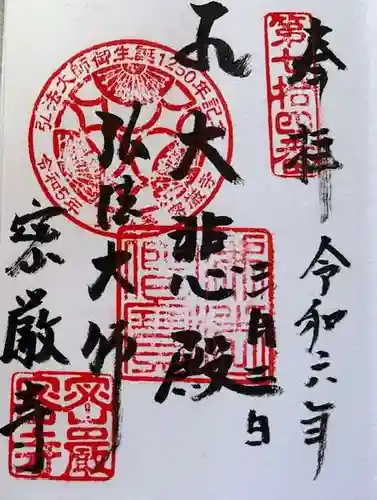 奉拝
第七拾四番
令和六年
三月二日
大悲殿
弘法大師
弘法大師御生誕1250年記念
令和5年
密厳寺